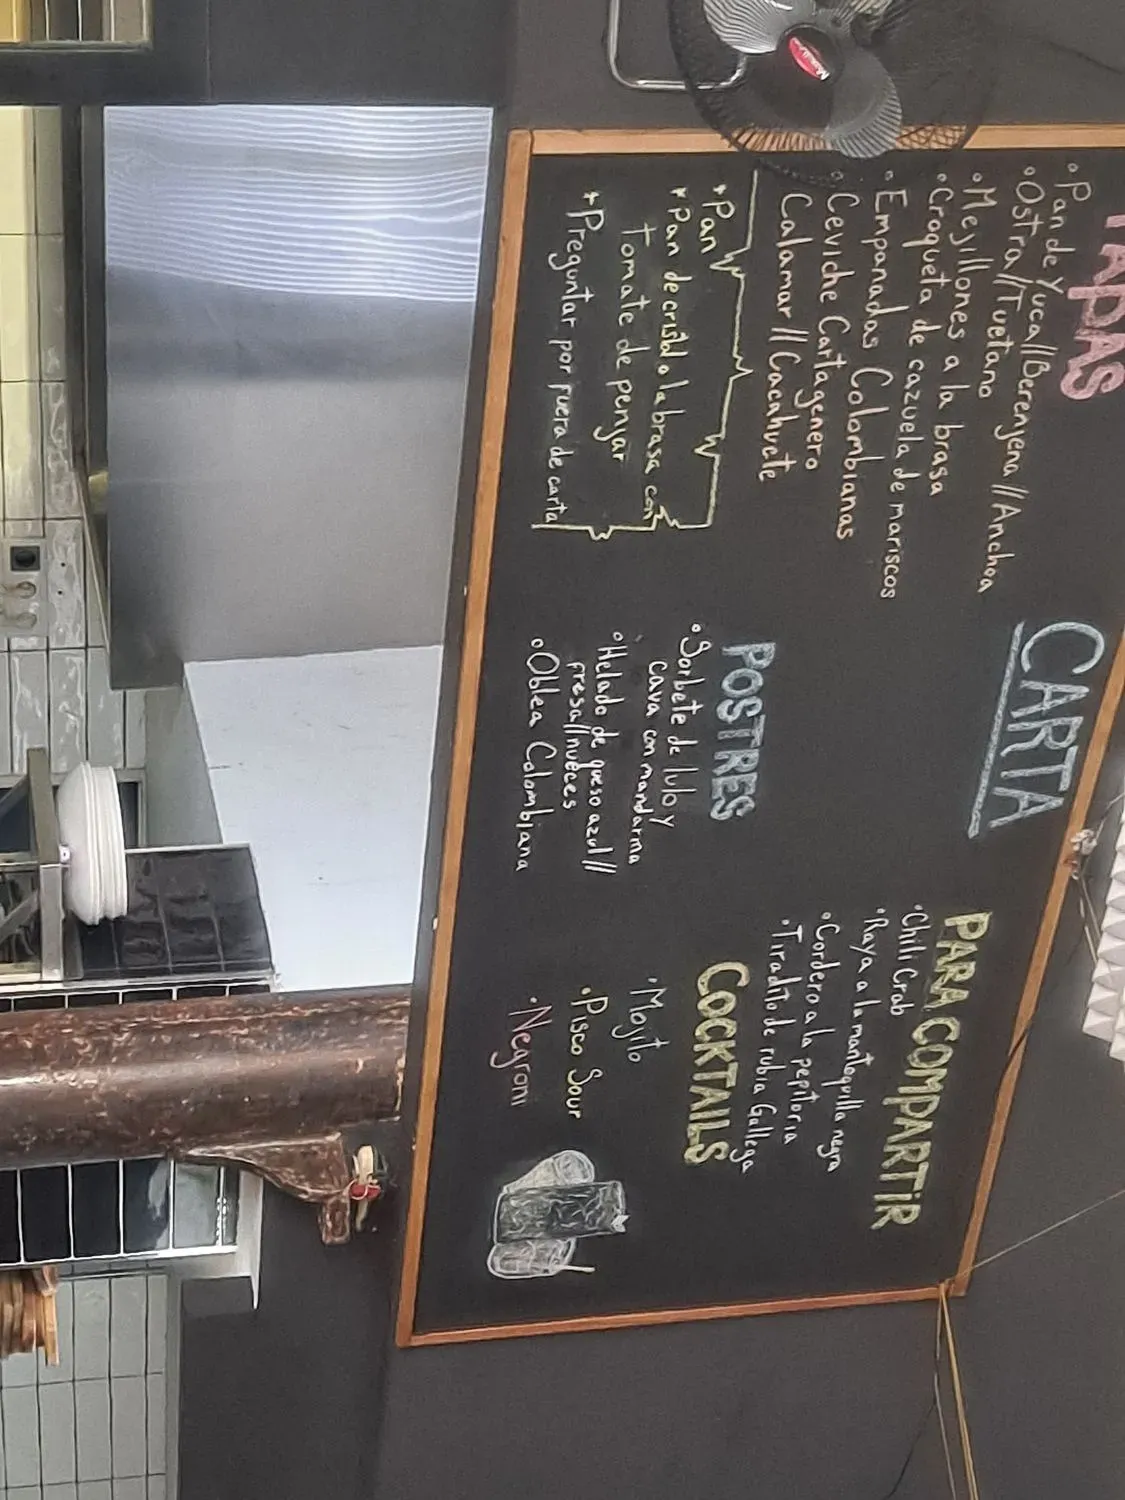 CARTA
TAPAS
• Pan de Yuca//Berenjena//Anchoa
• Ostra//Tuetano
• Mejillones a la brasa
• Croqueta de cazuela de mariscos
• Empanadas Colombianas
• Ceviche Cartagenero
Calamar//Cacahuete
+ Pan
+ Pan de cristal a la brasa con
Tomate de penjar
+ Preguntar por fuera de carta
POSTRES
• Sorbete de lulo y
Cava con mandarina
• Helado de queso azul//
fresa//nueces
• Oblea Colombiana
PARA COMPARTiR
• Chili Crab
• Raya a la mantequilla negra
• Cordero a la pepitoria
• Tiradito de rubia Gallega
COCKTAILS
• Mojito
• Pisco Sour
• Negroni